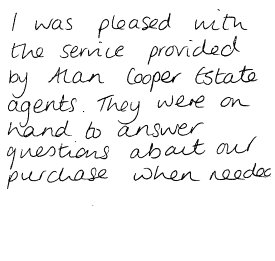 I was pleased with
the service provided
by Alan Cooper Estate
agents. They were on
hand to answer
questions about our
purchase when needed